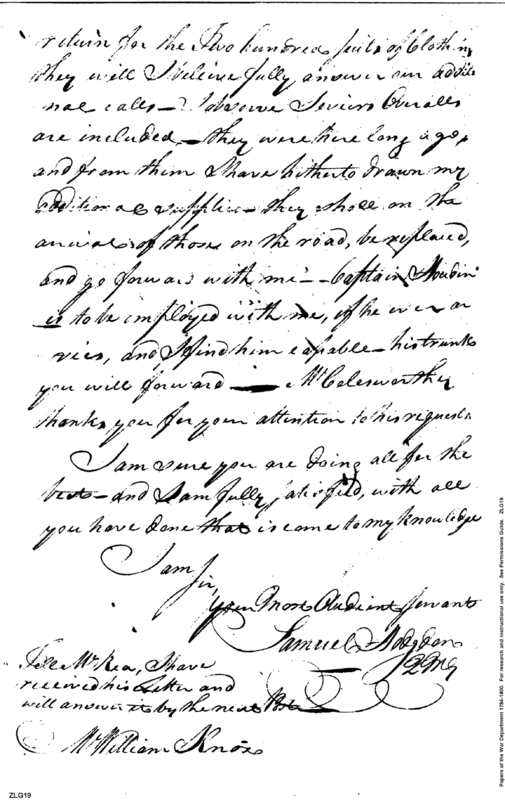 return for the Two hundred suits of Clothing
they will I beleive fully answer our additi
nal calls — I observe Seviers Overalls
are included — they were here long ago,
and from them I have hitherto drawn my
additional supplies — they shall on the
arrival of those on the road, be replaced,
and go forward with me — Captain
is to be employed with me, if he ever ar
rives, and I find him capable — his trunk
you will forward — Mr Colesworthy
thanks you for your attention to his request
I am sure you are doing all for the
best — and I am fully satisfied, with all
you have done that is come to my knowledge
I am
Sir
Your Most Obedient Servant
Samuel Hodgdon
QMG
Tell Mr Rea, I have
received his Letter and
will answer it by the next Post
Mr William Knox
ZLG19
Papers of the War Department 1784-1800. For research and instructional use only. See Permissions Guide. ZLG19